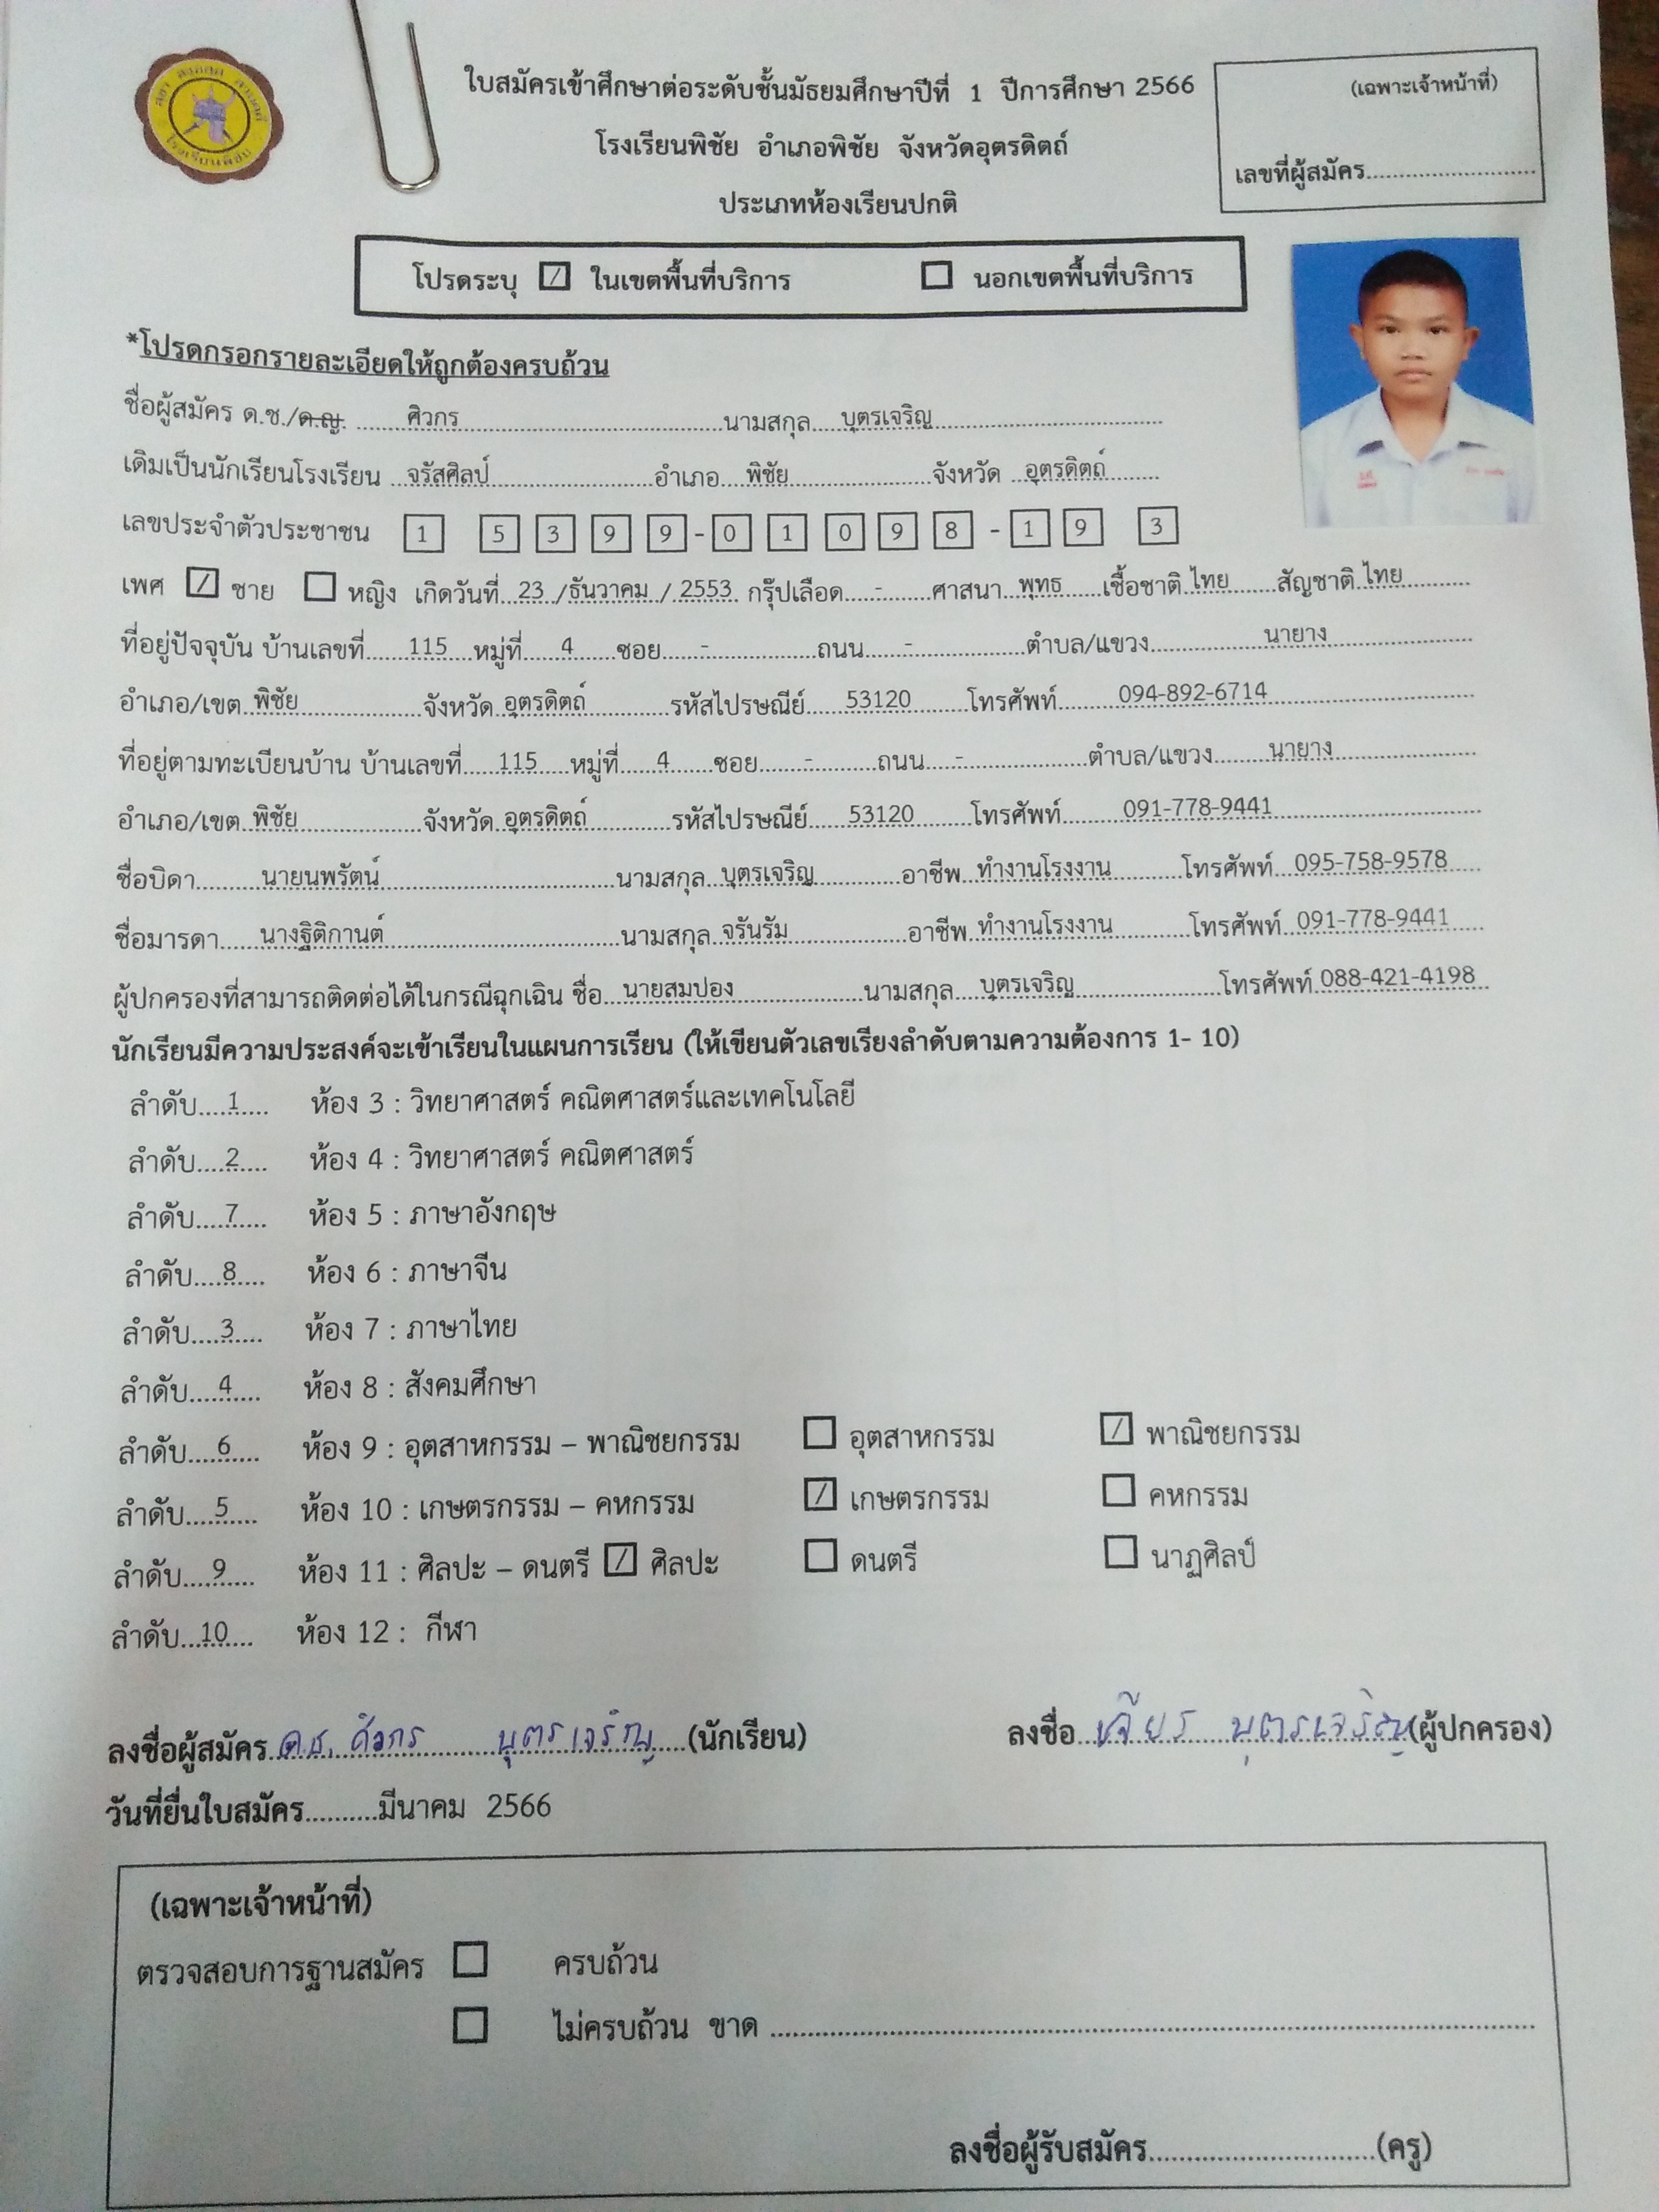 ใบสมัครเข้าศึกษาต่อระดับชั้นมัธยมศึกษาปีที่ 1 ปีการศึกษา 2566
(เฉพาะเจ้าหน้าที่)
โรงเรียนพิชัย อำเภอพิชัย จังหวัดอุตรดิตถ์
เลขที่ผู้สมัคร..........................
ประเภทห้องเรียนปกติ
โรงเรียนพิชัย
โปรดระบุ [/] ในเขตพื้นที่บริการ [ ] นอกเขตพื้นที่บริการ
*โปรดกรอกรายละเอียดให้ถูกต้องครบถ้วน
ชื่อผู้สมัคร ด.ช./ด.ญ. ศิวกร นามสกุล บุตรเจริญ
เดิมเป็นนักเรียนโรงเรียน จรัสศิลป์ อำเภอ พิชัย จังหวัด อุตรดิตถ์
เลขประจำตัวประชาชน 1 5 3 9 9 - 0 1 0 9 8 - 1 9 3
เพศ [/] ชาย [ ] หญิง เกิดวันที่ 23 / ธันวาคม / 2553 กรุ๊ปเลือด - ศาสนา พุทธ เชื้อชาติ ไทย สัญชาติ ไทย
ที่อยู่ปัจจุบัน บ้านเลขที่ 115 หมู่ที่ 4 ซอย - ถนน - ตำบล/แขวง นายาง
อำเภอ/เขต พิชัย จังหวัด อุตรดิตถ์ รหัสไปรษณีย์ 53120 โทรศัพท์ 094-892-6714
ที่อยู่ตามทะเบียนบ้าน บ้านเลขที่ 115 หมู่ที่ 4 ซอย - ถนน - ตำบล/แขวง นายาง
อำเภอ/เขต พิชัย จังหวัด อุตรดิตถ์ รหัสไปรษณีย์ 53120 โทรศัพท์ 091-778-9441
ชื่อบิดา นายนพรัตน์ นามสกุล บุตรเจริญ อาชีพ ทำงานโรงงาน โทรศัพท์ 095-758-9578
ชื่อมารดา นางฐิติกานต์ นามสกุล จรันรัม อาชีพ ทำงานโรงงาน โทรศัพท์ 091-778-9441
ผู้ปกครองที่สามารถติดต่อได้ในกรณีฉุกเฉิน ชื่อ นายสมปอง นามสกุล บุตรเจริญ โทรศัพท์ 088-421-4198
นักเรียนมีความประสงค์จะเข้าเรียนในแผนการเรียน (ให้เขียนตัวเลขเรียงลำดับตามความต้องการ 1- 10)
ลำดับ 1 ห้อง 3 : วิทยาศาสตร์ คณิตศาสตร์และเทคโนโลยี
ลำดับ 2 ห้อง 4 : วิทยาศาสตร์ คณิตศาสตร์
ลำดับ 7 ห้อง 5 : ภาษาอังกฤษ
ลำดับ 8 ห้อง 6 : ภาษาจีน
ลำดับ 3 ห้อง 7 : ภาษาไทย
ลำดับ 4 ห้อง 8 : สังคมศึกษา
ลำดับ 6 ห้อง 9 : อุตสาหกรรม – พาณิชยกรรม [ ] อุตสาหกรรม [/] พาณิชยกรรม
ลำดับ 5 ห้อง 10 : เกษตรกรรม – คหกรรม [/] เกษตรกรรม [ ] คหกรรม
ลำดับ 9 ห้อง 11 : ศิลปะ – ดนตรี [/] ศิลปะ [ ] ดนตรี [ ] นาฏศิลป์
ลำดับ 10 ห้อง 12 : กีฬา
ลงชื่อผู้สมัคร ด.ช. ศิวกร บุตรเจริญ (นักเรียน) ลงชื่อ บุตรเจริญ (ผู้ปกครอง)
วันที่ยื่นใบสมัคร..........มีนาคม 2566
(เฉพาะเจ้าหน้าที่)
ตรวจสอบการฐานสมัคร [ ] ครบถ้วน
[ ] ไม่ครบถ้วน ขาด ..........
ลงชื่อผู้รับสมัคร..............................(ครู)